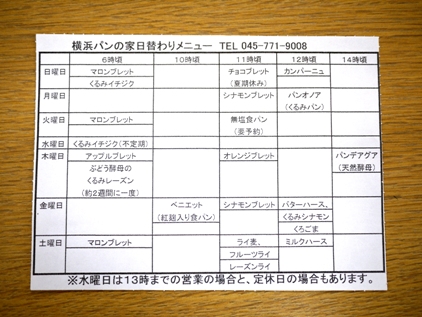 横浜パンの家日替わりメニュー TEL 045-771-9008
6時頃 10時頃 11時頃 12時頃 14時頃
日曜日 マロンブレット チョコブレット カンパーニュ
くるみイチジク (夏期休み)
月曜日 シナモンブレット パンオノア
(くるみパン)
火曜日 マロンブレット 無塩食パン
(要予約)
水曜日 くるみイチジク(不定期)
木曜日 アップルブレット オレンジブレット パンデアグア
ぶどう酵母の (天然酵母)
くるみレーズン
(約2週間に一度)
金曜日 ベニエット シナモンブレット バターハース、
(紅麹入り食パン) くるみシナモン
くろごま
土曜日 マロンブレット ライ麦、 ミルクハース
フルーツライ
レーズンライ
※水曜日は13時までの営業の場合と、定休日の場合もあります。